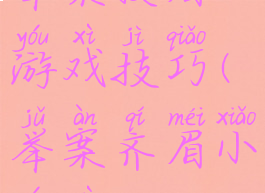 yóu xì jì qiǎo
游戏技巧(
jǔ àn qí méi xiǎo
举案齐眉小